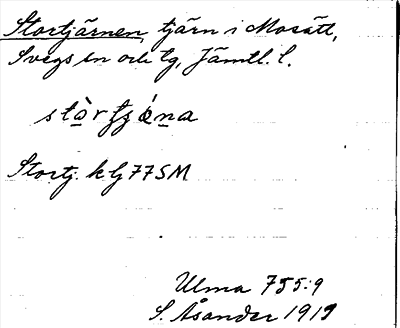 Stortjärnen, tjärn i Mosätt,
Svegs sn och tg, Jämtl. l.
Stortj. kbj 77SM
Ulma 755:9
S. Åsander 1919